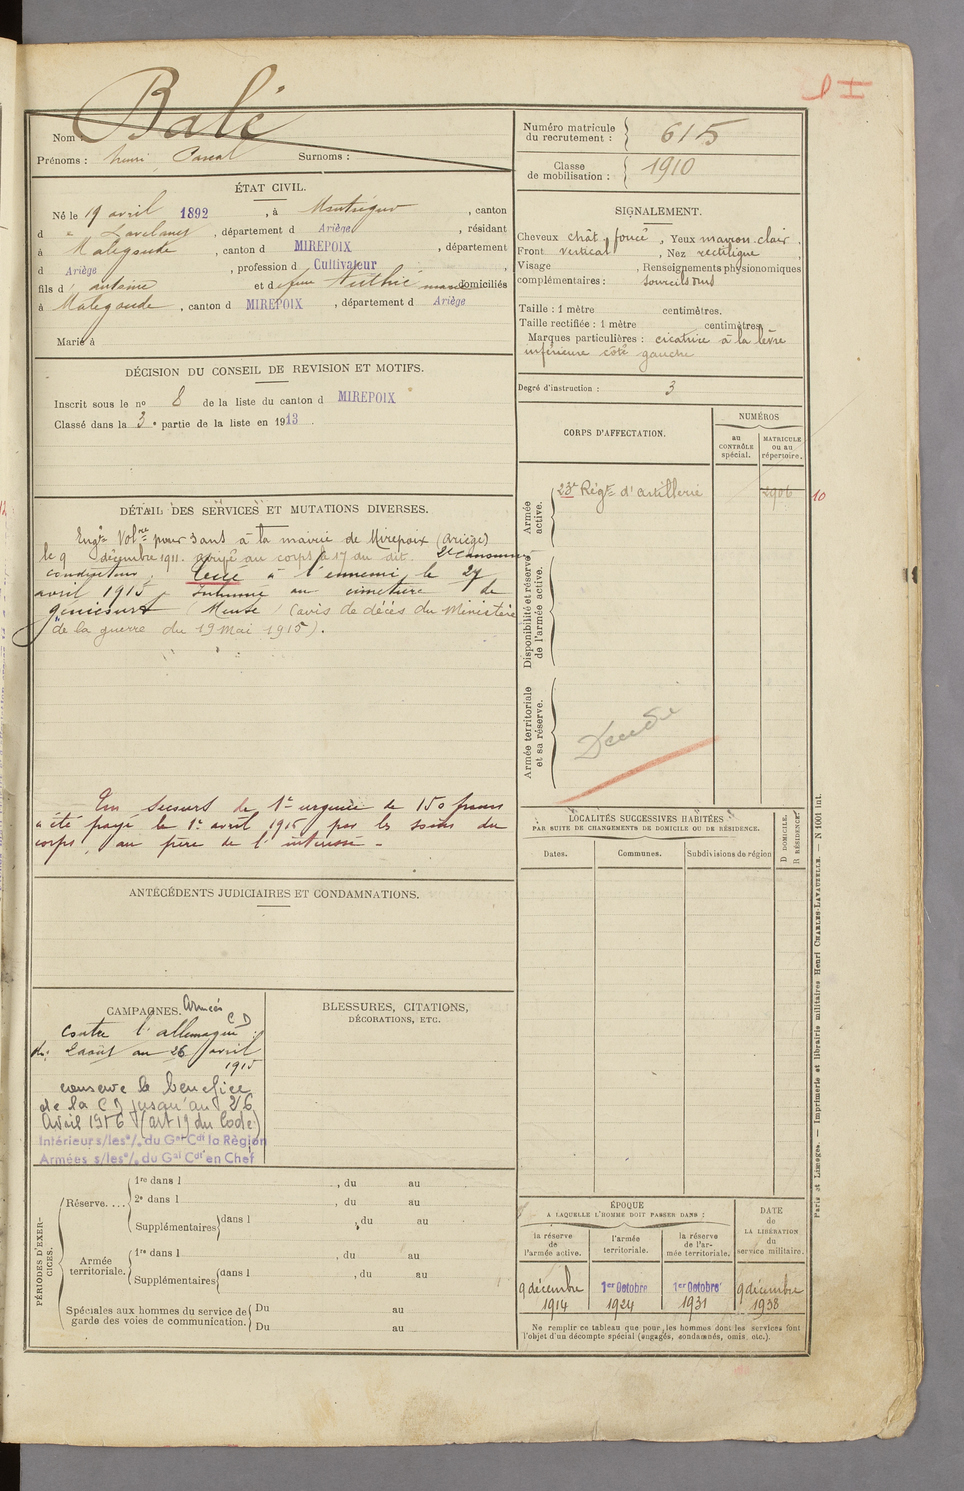 Nom : Balé
Prénoms : henri Pascal Surnoms :
ÉTAT CIVIL.
Né le 19 avril 1892, à Montségur, canton
d e Lavelanet, département d Ariège, résidant
à Malegoude, canton d MIREPOIX, département
d Ariège, profession d Cultivateur
fils d' antoine et de feue Authié domiciliés
à Malegoude, canton d MIREPOIX, département d Ariège
Marié à
DÉCISION DU CONSEIL DE REVISION ET MOTIFS.
Inscrit sous le no 8 de la liste du canton d MIREPOIX
Classé dans la 3e partie de la liste en 1913.
DÉTAIL DES SERVICES ET MUTATIONS DIVERSES.
Engé Volre pour 3 ans à la mairie de Mirepoix (Ariège)
le 9 décembre 1911. arrivé au corps le 17 du dit. 2e Canonnier
conducteur. Tué à l'ennemi le 27
avril 1915. Inhumé au cimetière de
Génicourt (Meuse) (avis de décès du Ministère
de la guerre du 19 Mai 1915).
Un secours de 1re urgence de 150 francs
a été payé le 1er avril 1915 par les soins du
corps, au père de l'intéressé -
ANTÉCÉDENTS JUDICIAIRES ET CONDAMNATIONS.
CAMPAGNES. Armées
C D
Contre l'allemagne :
du 2 août au 26 avril
1915
conserve le bénéfice
de la C D jusqu'au 26
Avril 1916 (art 19 du Code)
Intérieur s/les o/. du Gal Cdt la Règion
Armées s/les o/. du Gal Cdt en Chef
BLESSURES, CITATIONS,
DÉCORATIONS, ETC.
PÉRIODES D'EXERCICES.
Réserve....
1re dans l , du au
2e dans l , du au
Supplémentaires dans l , du au
Armée territoriale.
1re dans l , du au
Supplémentaires dans l , du au
Spéciales aux hommes du service de garde des voies de communication.
Du au
Du au
Numéro matricule
du recrutement : 615
Classe
de mobilisation : 1910
SIGNALEMENT.
Cheveux chât. foncé, Yeux marron clair
Front vertical, Nez rectiligne
Visage , Renseignements physionomiques
complémentaires : sourcils drus
Taille : 1 mètre centimètres.
Taille rectifiée : 1 mètre centimètres
Marques particulières : cicatrice à la lèvre
inférieure côté gauche
Degré d'instruction : 3
CORPS D'AFFECTATION.
NUMÉROS
au CONTRÔLE spécial.
MATRICULE ou au répertoire.
Armée active.
23e Régt d'artillerie 2906
10
Disponibilité et réserve de l'armée active.
Armée territoriale et sa réserve.
Décédé
LOCALITÉS SUCCESSIVES HABITÉES
PAR SUITE DE CHANGEMENTS DE DOMICILE OU DE RÉSIDENCE.
Dates. Communes. Subdivisions de région
D DOMICILE.
R RÉSIDENCE.
ÉPOQUE
A LAQUELLE L'HOMME DOIT PASSER DANS :
la réserve de l'armée active.
l'armée territoriale.
la réserve de l'armée territoriale.
DATE de LA LIBÉRATION du service militaire.
9 décembre 1914
1er Octobre 1924
1er Octobre 1931
9 décembre 1938
Ne remplir ce tableau que pour les hommes dont les services font
l'objet d'un décompte spécial (engagés, condamnés, omis, etc.).
Paris et Limoges. — Imprimerie et librairie militaires Henri CHARLES-LAVAUZELLE. — N 1001 Int.